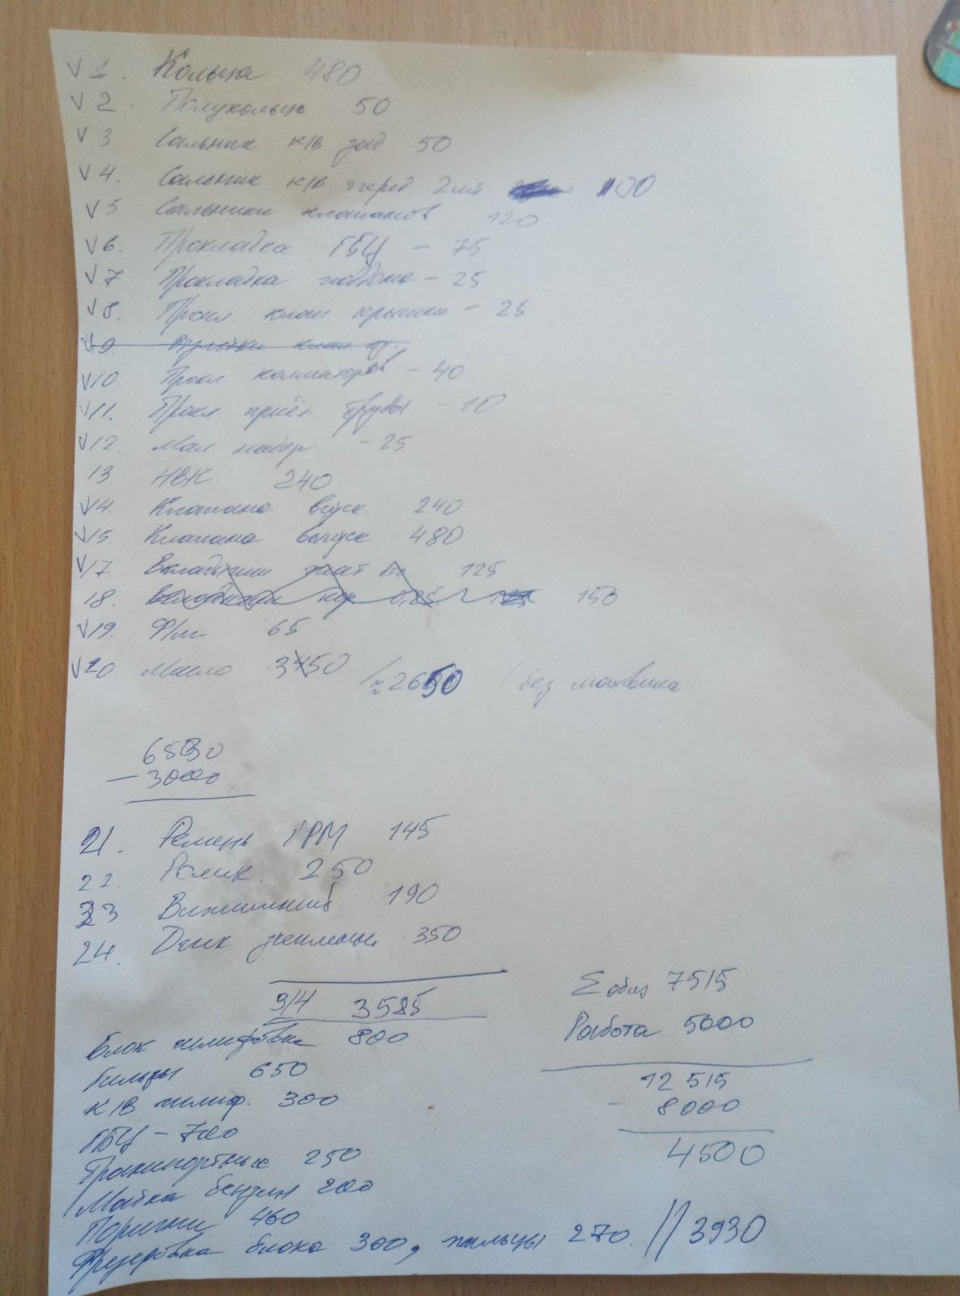 V 1. Кольца 480
V 2. Полукольца 50
V 3 Сальник к/в зад 50
V 4. Сальник к/в перед 2шт 100
V 5 Сальники клапанов 120
V 6. Прокладка ГБЦ - 75
V 7 Прокладка поддона - 25
V 8. Прокл. клап крышки - 25
V 9
V 10. Прокл коллекторов - 40
V 11. Прокл. приём. трубы - 10
V 12. Мал набор - 25
13 НВК 240
V 14. Клапана впуск. 240
V 15 Клапана выпуск 480
V 17. Вкладыши 125
18. 150
V 19. Ф/м 65
V 20. Масло 3450 / ≈ 2650 / без маховика
6530
- 3000
21. Ремень ГРМ 145
22. Ролик. 250
23 Выжимной 190
24. Диск сцеплены 350
З/Ч 3585
Σ общ 7515
Работа 5000
12 515
- 8000
4500
Блок шлифовка 800
Гильзы 650
К/В шлиф. 300
ГБЦ - 700
Транспортные 250
Мойка бензин 200
Поршни 460
Фрезеровка блока 300, пальцы 270. // 3930